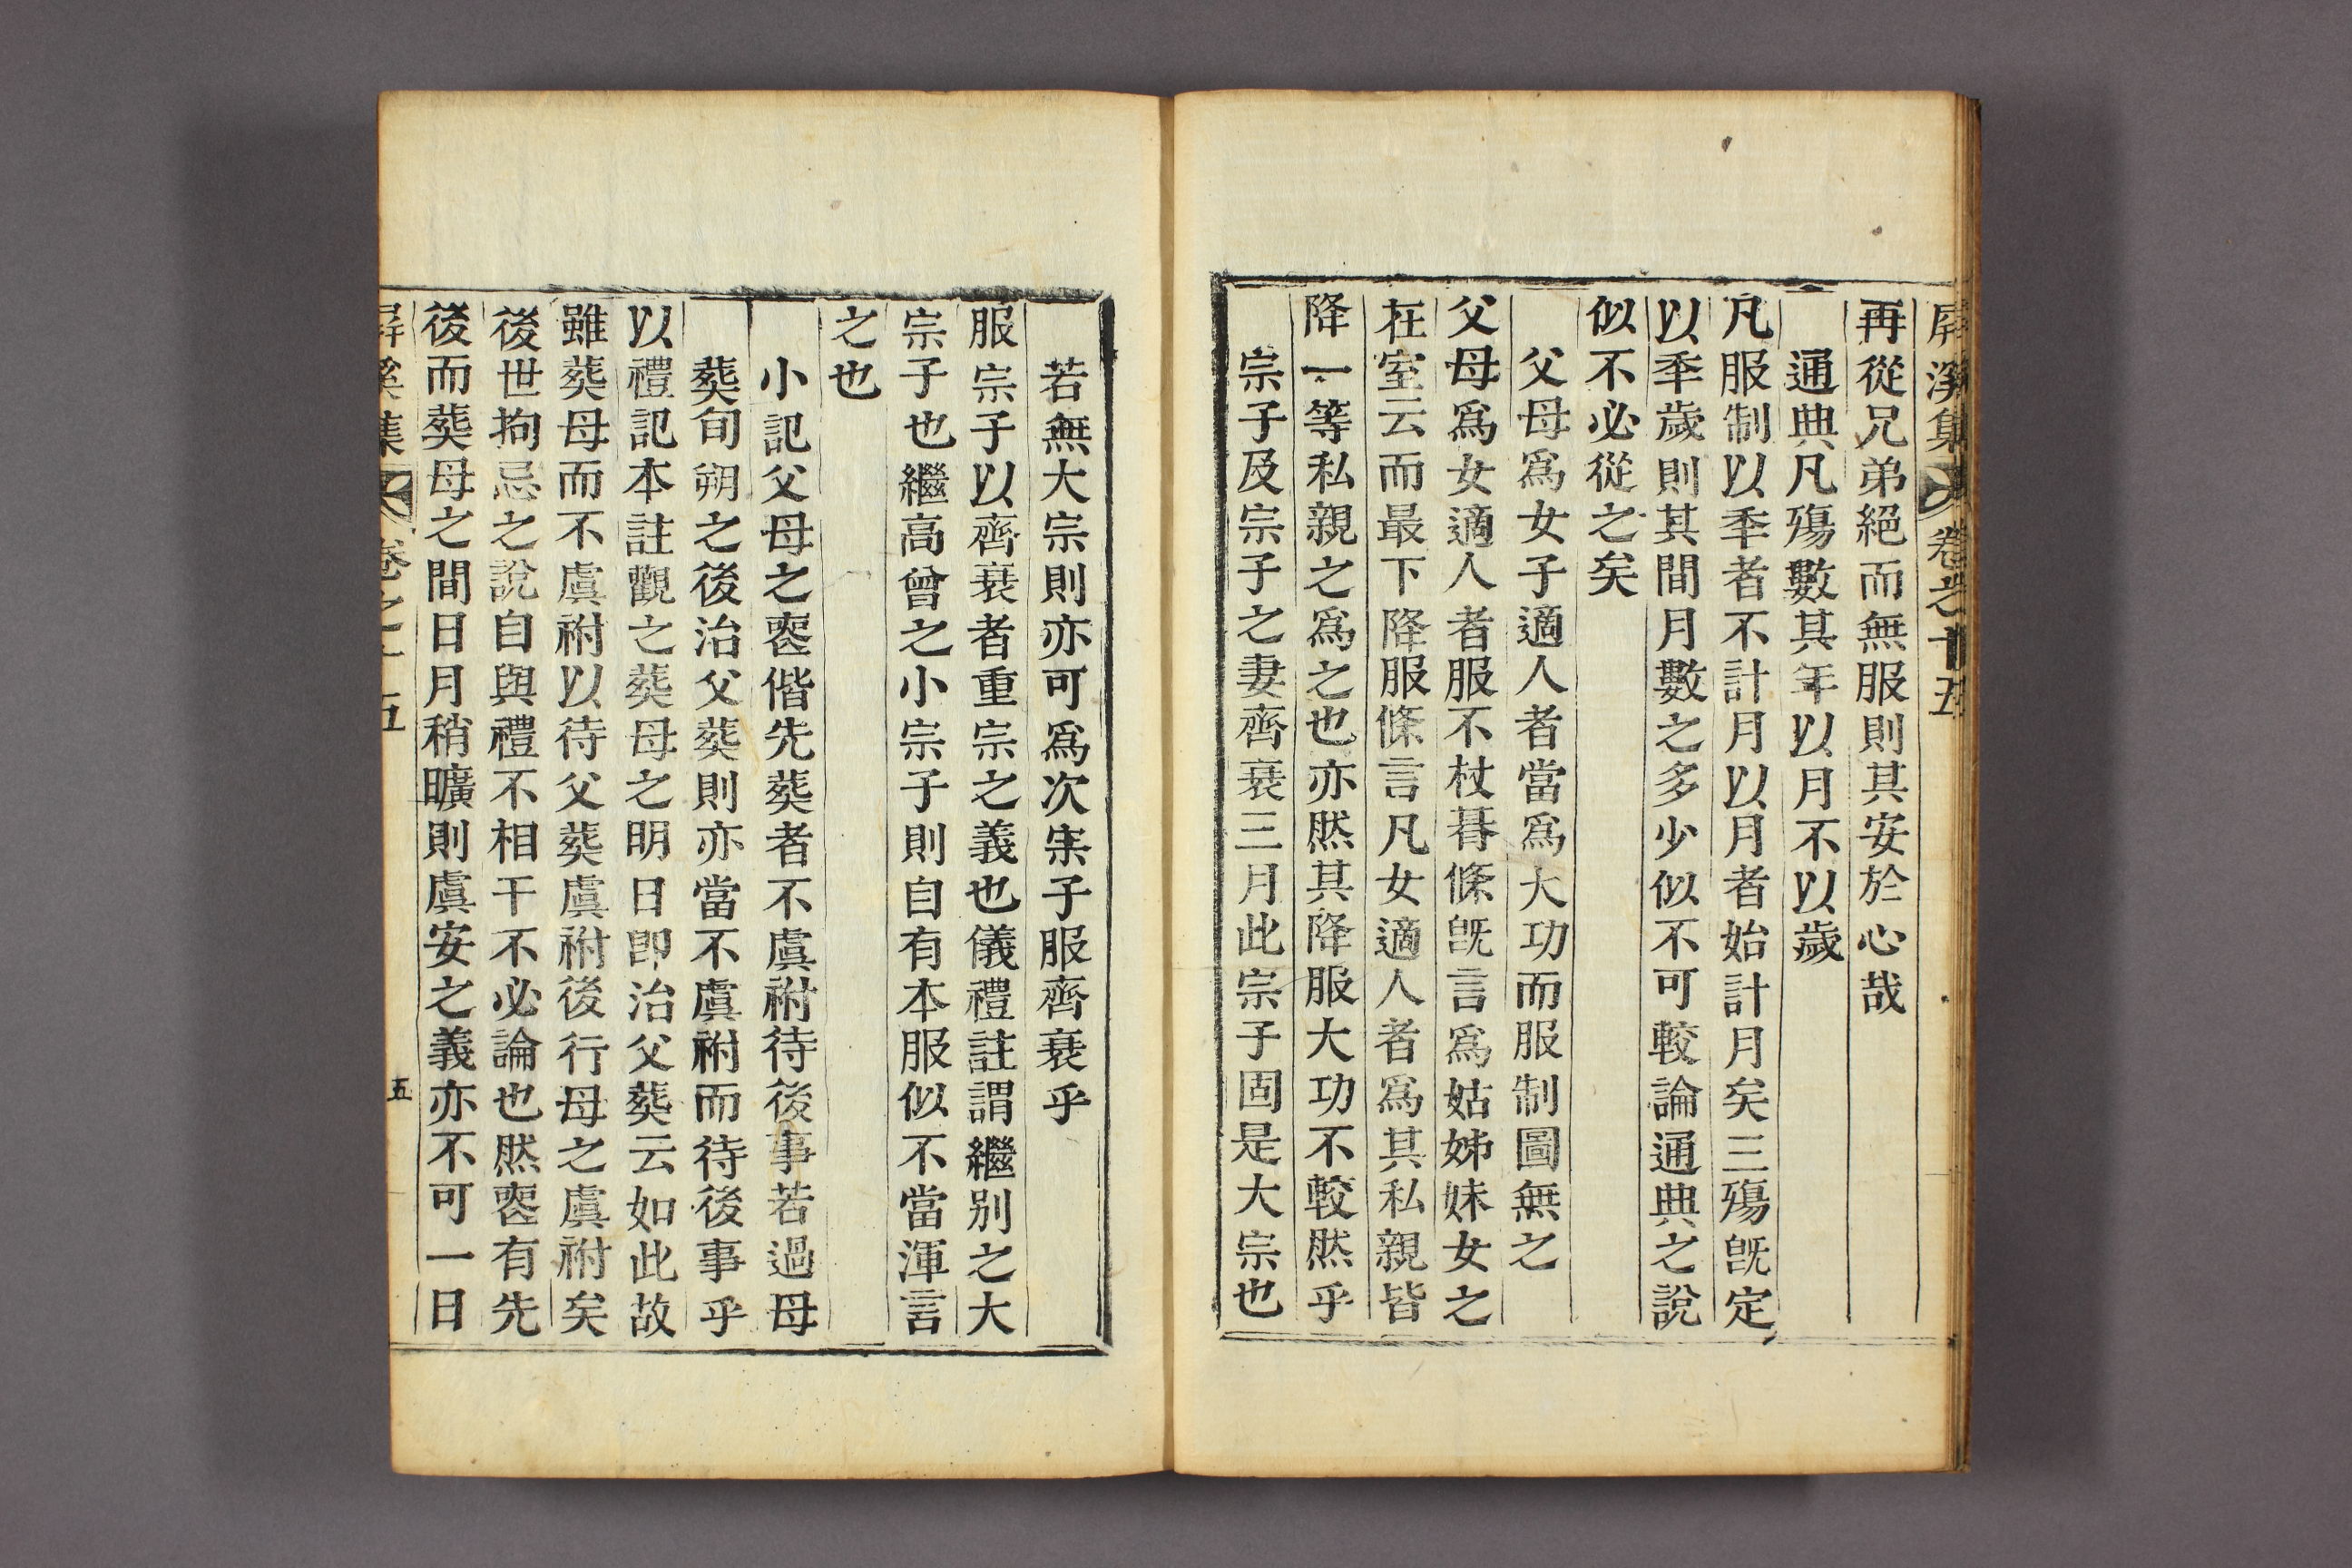 屛溪集 卷之十五
再從兄弟絕而無服則其安於心哉
通典凡殤數其年以月不以歲
凡服制以秊者不計月以月者始計月矣三殤旣定
以秊歲則其間月數之多少似不可較論通典之說
似不必從之矣
父母爲女子適人者當爲大功而服制圖無之
父母爲女適人者服不杖朞條旣言爲姑姊妹女之
在室云而最下降服條言凡女適人者爲其私親皆
降一等私親之爲之也亦然其降服大功不較然乎
宗子及宗子之妻齊衰三月此宗子固是大宗也
若無大宗則亦可爲次宗子服齊衰乎
服宗子以齊衰者重宗之義也儀禮註謂繼别之大
宗子也繼高曾之小宗子則自有本服似不當渾言
之也
小記父母之喪偕先葬者不虞祔待後事若過母
葬旬朔之後治父葬則亦當不虞祔而待後事乎
以禮記本註觀之葬母之明日卽治父葬云如此故
雖葬母而不虞祔以待父葬虞祔後行母之虞祔矣
後世拘忌之說自與禮不相干不必論也然喪有先
後而葬母之間日月稍曠則虞安之義亦不可一日
屛溪集 卷之十五 五